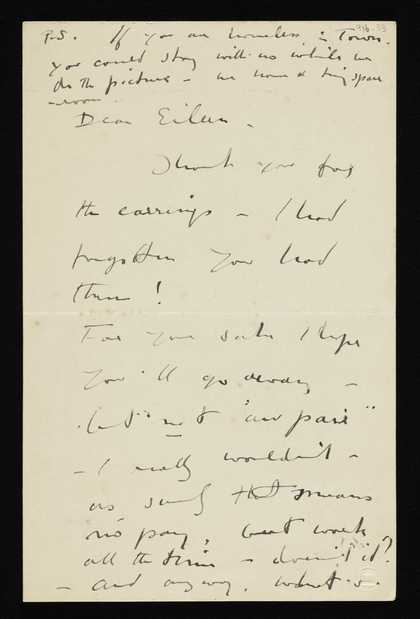 P.S. If you are homeless in Town.
you could stay with us while we
do the picture – we have a tiny spare
room.
Dear Eileen –
Thank you for
the earrings – I had
forgotten you had
them!
For your sake I hope
you'll go away –
but not "au pair"
– I really wouldn't –
as surely that means
no pay, but work
all the time – doesn't it?
– and anyway, what is